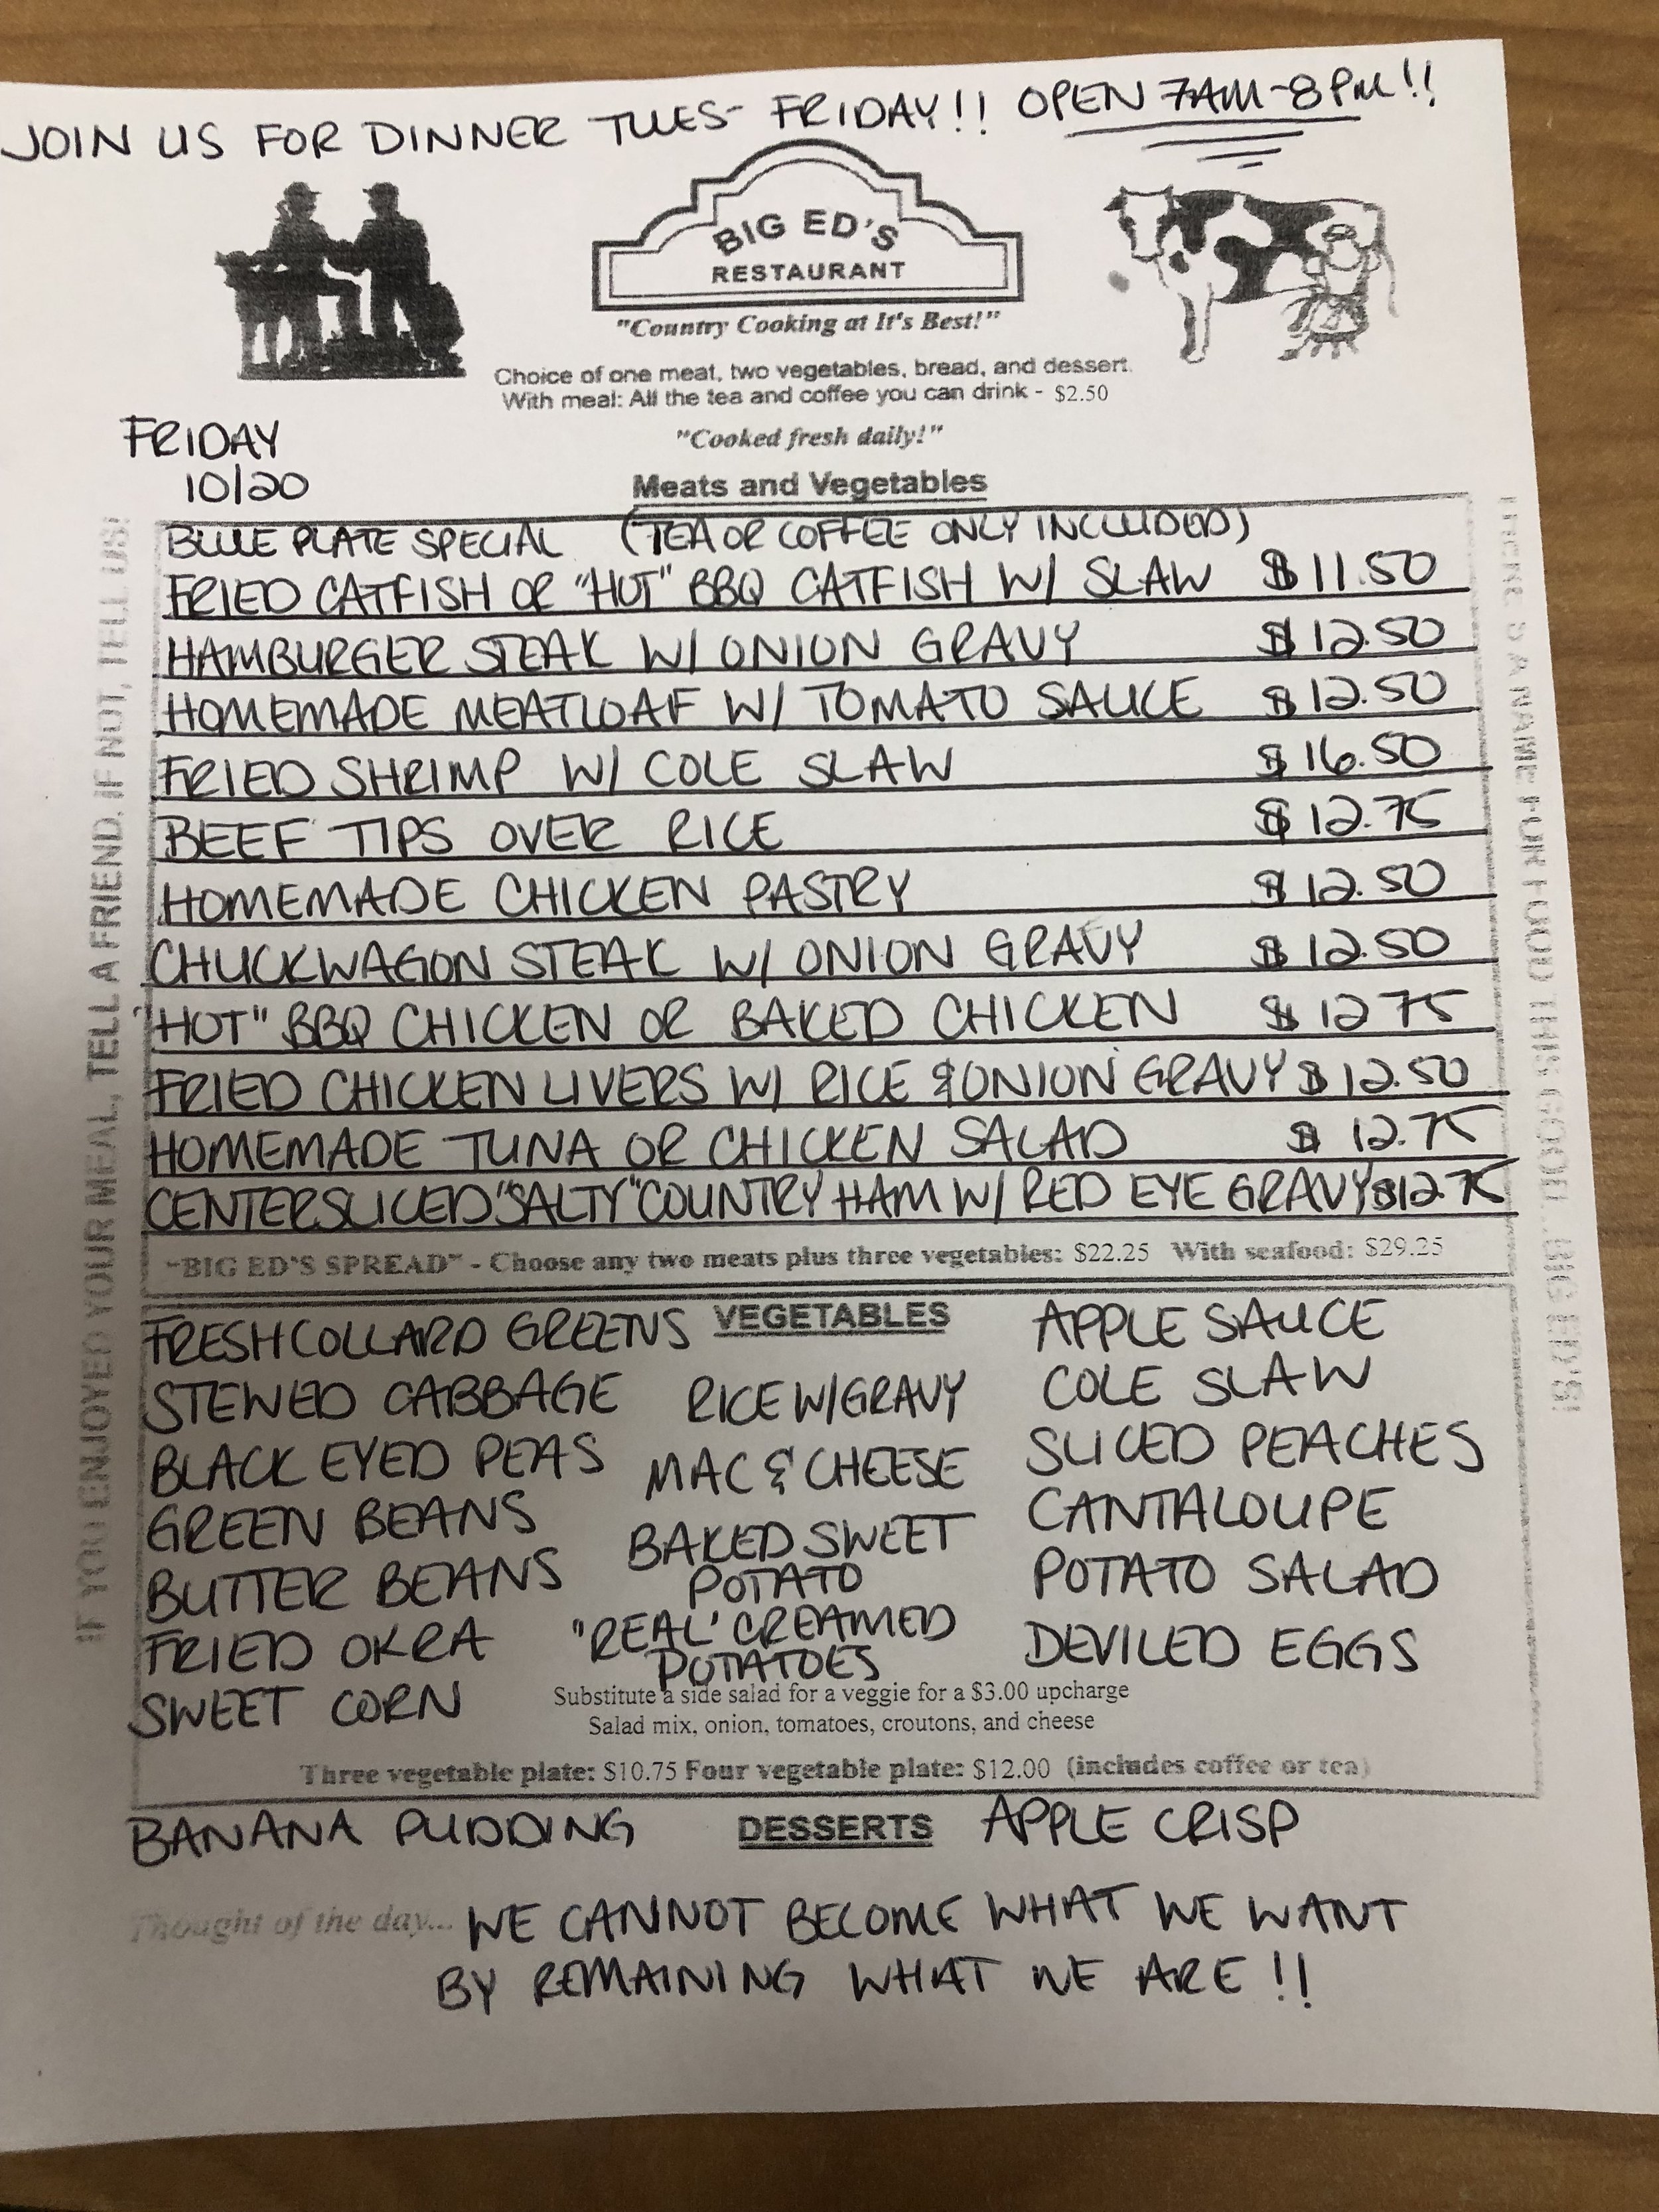 JOIN US FOR DINNER TUES- FRIDAY!! OPEN 7AM-8PM!!
BIG ED'S
RESTAURANT
"Country Cooking at It's Best!"
Choice of one meat, two vegetables, bread, and dessert.
With meal: All the tea and coffee you can drink - $2.50
"Cooked fresh daily!"
FRIDAY
10/20
Meats and Vegetables
BLUE PLATE SPECIAL (TEA OR COFFEE ONLY INCLUDED)
FRIED CATFISH OR "HOT" BBQ CATFISH W/ SLAW $11.50
HAMBURGER STEAK W/ ONION GRAVY $12.50
HOMEMADE MEATLOAF W/ TOMATO SAUCE $12.50
FRIED SHRIMP W/ COLE SLAW $16.50
BEEF TIPS OVER RICE $12.75
HOMEMADE CHICKEN PASTRY $12.50
CHUCKWAGON STEAK W/ ONION GRAVY $12.50
"HOT" BBQ CHICKEN OR BAKED CHICKEN $12 75
FRIED CHICKEN LIVERS W/ RICE & ONION GRAVY $12.50
HOMEMADE TUNA OR CHICKEN SALAD $12.75
CENTER SLICED "SALTY" COUNTRY HAM W/ RED EYE GRAVY $12.75
"BIG ED'S SPREAD" - Choose any two meats plus three vegetables: $22.25 With seafood: $29.25
VEGETABLES
FRESH COLLARD GREENS
STEWED CABBAGE
BLACK EYED PEAS
GREEN BEANS
BUTTER BEANS
FRIED OKRA
SWEET CORN
RICE W/GRAVY
MAC & CHEESE
BAKED SWEET
POTATO
"REAL" CREAMED
POTATOES
APPLE SAUCE
COLE SLAW
SLICED PEACHES
CANTALOUPE
POTATO SALAD
DEVILED EGGS
Substitute a side salad for a veggie for a $3.00 upcharge
Salad mix, onion, tomatoes, croutons, and cheese
Three vegetable plate: $10.75 Four vegetable plate: $12.00 (includes coffee or tea)
BANANA PUDDING DESSERTS APPLE CRISP
Thought of the day... WE CANNOT BECOME WHAT WE WANT
BY REMAINING WHAT WE ARE!!
IF YOU ENJOYED YOUR MEAL, TELL A FRIEND. IF NOT, TELL US!
THERE'S A NAME FOR FOOD THIS GOOD... BIG ED'S!